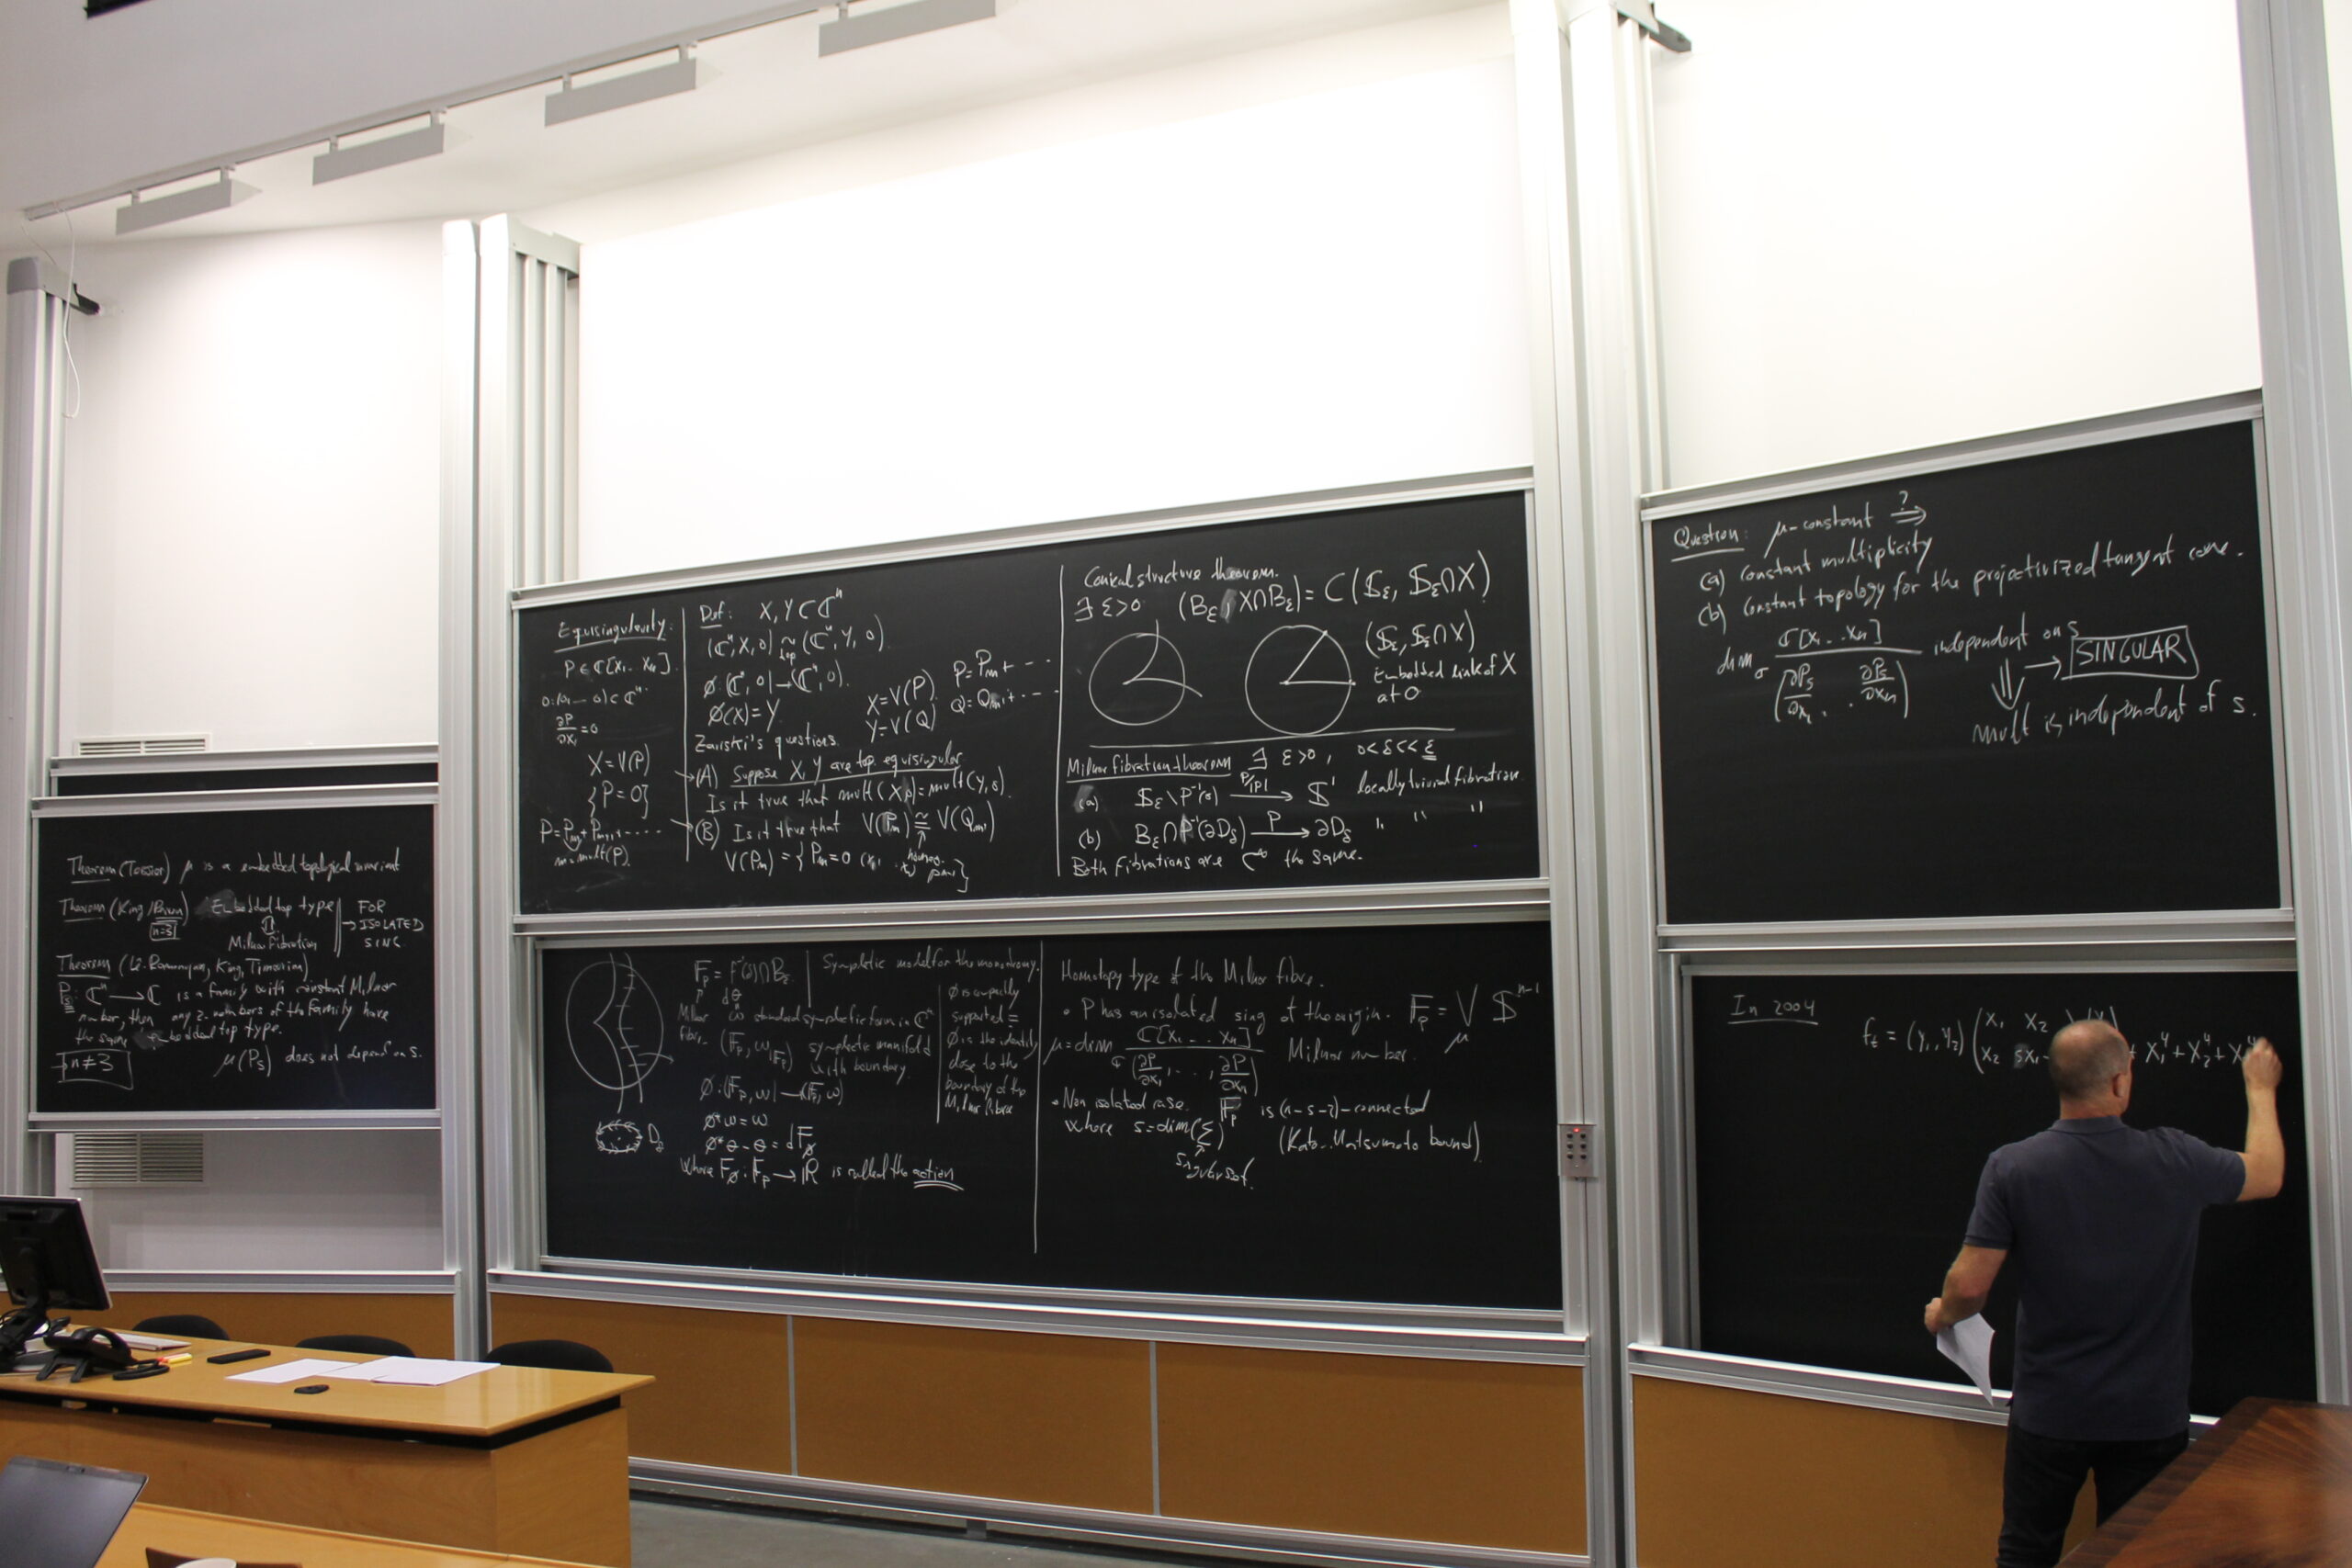 Theorem (Teissier) μ is a embedded topological invariant
Theorem (King /Perron) Embedded top type
n=3
⇕
Milnor Fibration
→ FOR
ISOLATED
SING.
Theorem (Lê-Ramanujan, King, Timourian)
Ps: ℂⁿ → ℂ is a family with constant Milnor
number, then any 2 members of the family have
the same embedded top type.
→ n≠3
μ(Ps) does not depend on s.
Equisingularity:
P ∈ ℂ[x₁...xₙ].
0=(0,...0) ∈ ℂⁿ
∂P/∂x₁ = 0
X = V(P)
{P=0}
P = Pₘ + Pₘ₊₁ + ....
m = mult(P).
Def: X, Y ⊂ ℂⁿ
(ℂⁿ, X, 0) ~top (ℂⁿ, Y, 0)
ø: (ℂⁿ, 0) → (ℂⁿ, 0).
ø(X) = Y
X = V(P)
Y = V(Q)
P = Pₘ + ...
Q = Qₘ' + ...
Zariski's questions.
(A) Suppose X, Y are top. equisingular
Is it true that mult(X,0) = mult(Y,0).
(B) Is it true that V(Pₘ) ≅ V(Qₘ')
↑
homeo.
V(Pₘ) = { Pₘ = 0
Conical structure theorem.
∃ ε>0 (Bε, X∩Bε) = C(𝕊ε, 𝕊ε∩X)
(𝕊ε, 𝕊ε∩X)
Embedded link of X
at 0
Milnor fibration theorem ∃ ε>0, 0<δ<<ε
(a) 𝕊ε \ P⁻¹(0) —P/|P|→ 𝕊¹ locally trivial fibration.
(b) Bε ∩ P⁻¹(∂Dδ) —P→ ∂Dδ " " "
Both fibrations are C^∞ the same.
Fp = f⁻¹(s)∩Bε
↑
Milnor
fibre.
dθ
ω standard symplectic form in ℂⁿ
(Fp, ω|Fp) symplectic manifold
with boundary.
ø: (Fp, ω) → (Fp, ω)
ø*ω = ω
ø*θ - θ = dFø
where Fø: Fp → ℝ is called the action
Dδ
Symplectic model for the monodromy.
ø is compactly
supported =
ø is the identity
close to the
boundary of the
Milnor fibre
Homotopy type of the Milnor fibre.
• P has an isolated sing at the origin. Fp = ⋁μ 𝕊ⁿ⁻¹
μ = dim ℂ ℂ[x₁...xₙ] / (∂P/∂x₁, ..., ∂P/∂xₙ) Milnor number.
• Non isolated case. Fp is (n-s-2)-connected
where s = dim(Σ) (Kato-Matsumoto bound).
↑
Singular set.
Question: μ-constant ⇒?
(a) constant multiplicity
(b) constant topology for the projectivized tangent cone.
dim ℂ ℂ[x₁...xₙ] / (∂Ps/∂x₁, .. ∂Ps/∂xₙ) independent on s
⇓ → SINGULAR
mult is independent of s.
In 2004
fₜ = (y₁, y₂) (x₁ x₂
x₂ sx₁ + x₁⁴ + x₂⁴ + x